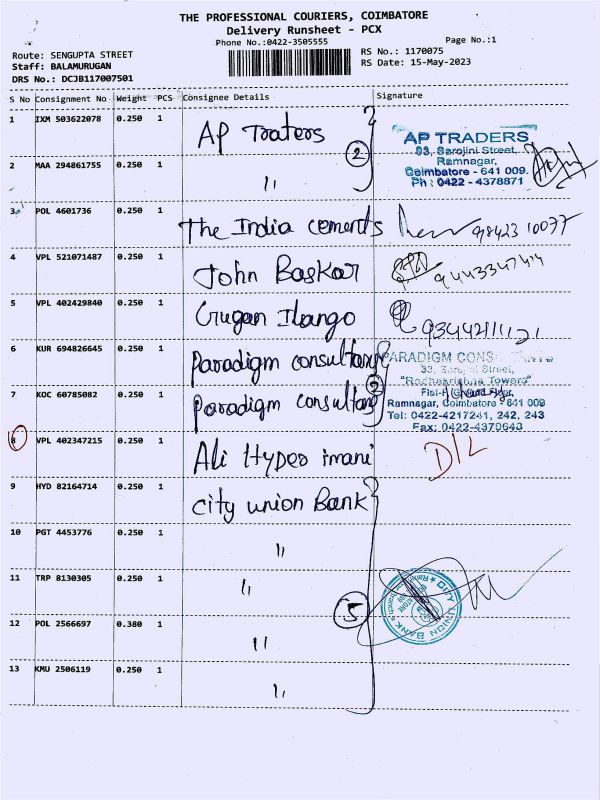 THE PROFESSIONAL COURIERS, COIMBATORE
Delivery Runsheet - PCX
Phone No.:0422-3505555
Page No.:1
Route: SENGUPTA STREET
Staff: BALAMURUGAN
DRS No.: DCJB117007501
RS No.: 1170075
RS Date: 15-May-2023
S No Consignment No Weight PCS Consignee Details Signature
1 IXM 503622078 0.250 1 AP Traters
AP TRADERS
93, Sarojini Street,
Ramnagar,
Coimbatore - 641 009.
Ph : 0422 - 4378871
2 MAA 294861755 0.250 1 " 2
3 POL 4601736 0.250 1 The India cements 9842310077
4 VPL 521071487 0.250 1 John Baskar 9443347414
5 VPL 402429840 0.250 1 Gugan Ilango
6 KUR 694826645 0.250 1 Paradigm consultancy
7 KOC 60785082 0.250 1 Paradigm consultancy 2
PARADIGM CONS
33, Sarojini Street,
"Radhakrishna Towers"
Floor,
Ramnagar, Coimbatore - 641 009
Tel: 0422-4217241, 242, 243
Fax: 0422-4370643
8 VPL 402347215 0.250 1 Ali Hyper imani D/L
9 HYD 82164714 0.250 1 city union Bank
10 PGT 4453776 0.250 1 "
11 TRP 8130305 0.250 1 "
12 POL 2566697 0.380 1 " 5
13 KMU 2506119 0.250 1 "
CITY UNION BANK